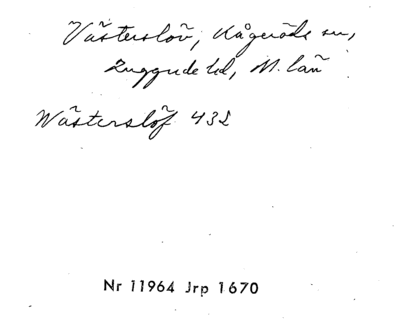 Västerslöv, Kågeröds sn,
Luggude hd, M. län
Wästerslöf 432
Nr 11964 Jrp 1670